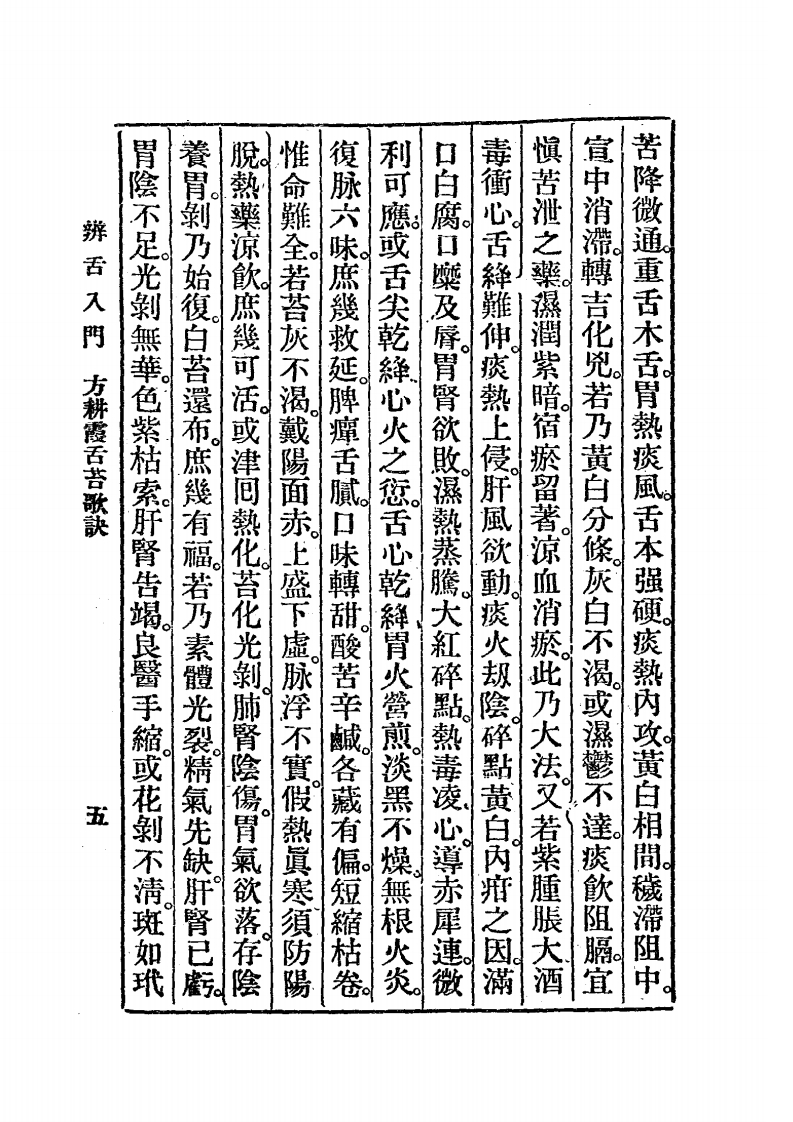 苦降微通。重舌木舌。胃熱痰風。舌本强硬。痰熱內攻。黃白相間。穢滯阻中。
宣中消滯。轉吉化兇。若乃黃白分條。灰白不渴。或濕鬱不達。痰飲阻膈。宜
愼苦泄之藥。濕潤紫暗。宿瘀留著。涼血消瘀。此乃大法。又若紫腫脹大、酒
毒衝心。舌絳難伸。痰熱上侵。肝風欲動。痰火刼陰。碎點黃白。內疳之因。滿
口白腐。口糜及唇。胃腎欲敗。濕熱蒸騰。大紅碎點。熱毒凌心。導赤犀連。微
利可應。或舌尖乾絳。心火之愆。舌心乾絳。胃火營煎。淡黑不燥、無根火炎。
復脉六味。庶幾救延。脾癉舌膩。口味轉甜。酸苦辛鹹。各藏有偏。短縮枯卷。
惟命難全。若苔灰不渴。戴陽面赤。上盛下虛。脉浮不實。假熱眞寒、須防陽
脫。熱藥涼飲。庶幾可活。或津回熱化。苔化光剝。肺腎陰傷。胃氣欲落。存陰
養胃。剝乃始復。白苔還布。庶幾有福。若乃素體光裂。精氣先缺。肝腎已虧。
胃陰不足。光剝無華。色紫枯索。肝腎告竭。良醫手縮。或花剝不淸。斑如玳
辨舌入門　方耕霞舌苔歌訣　五